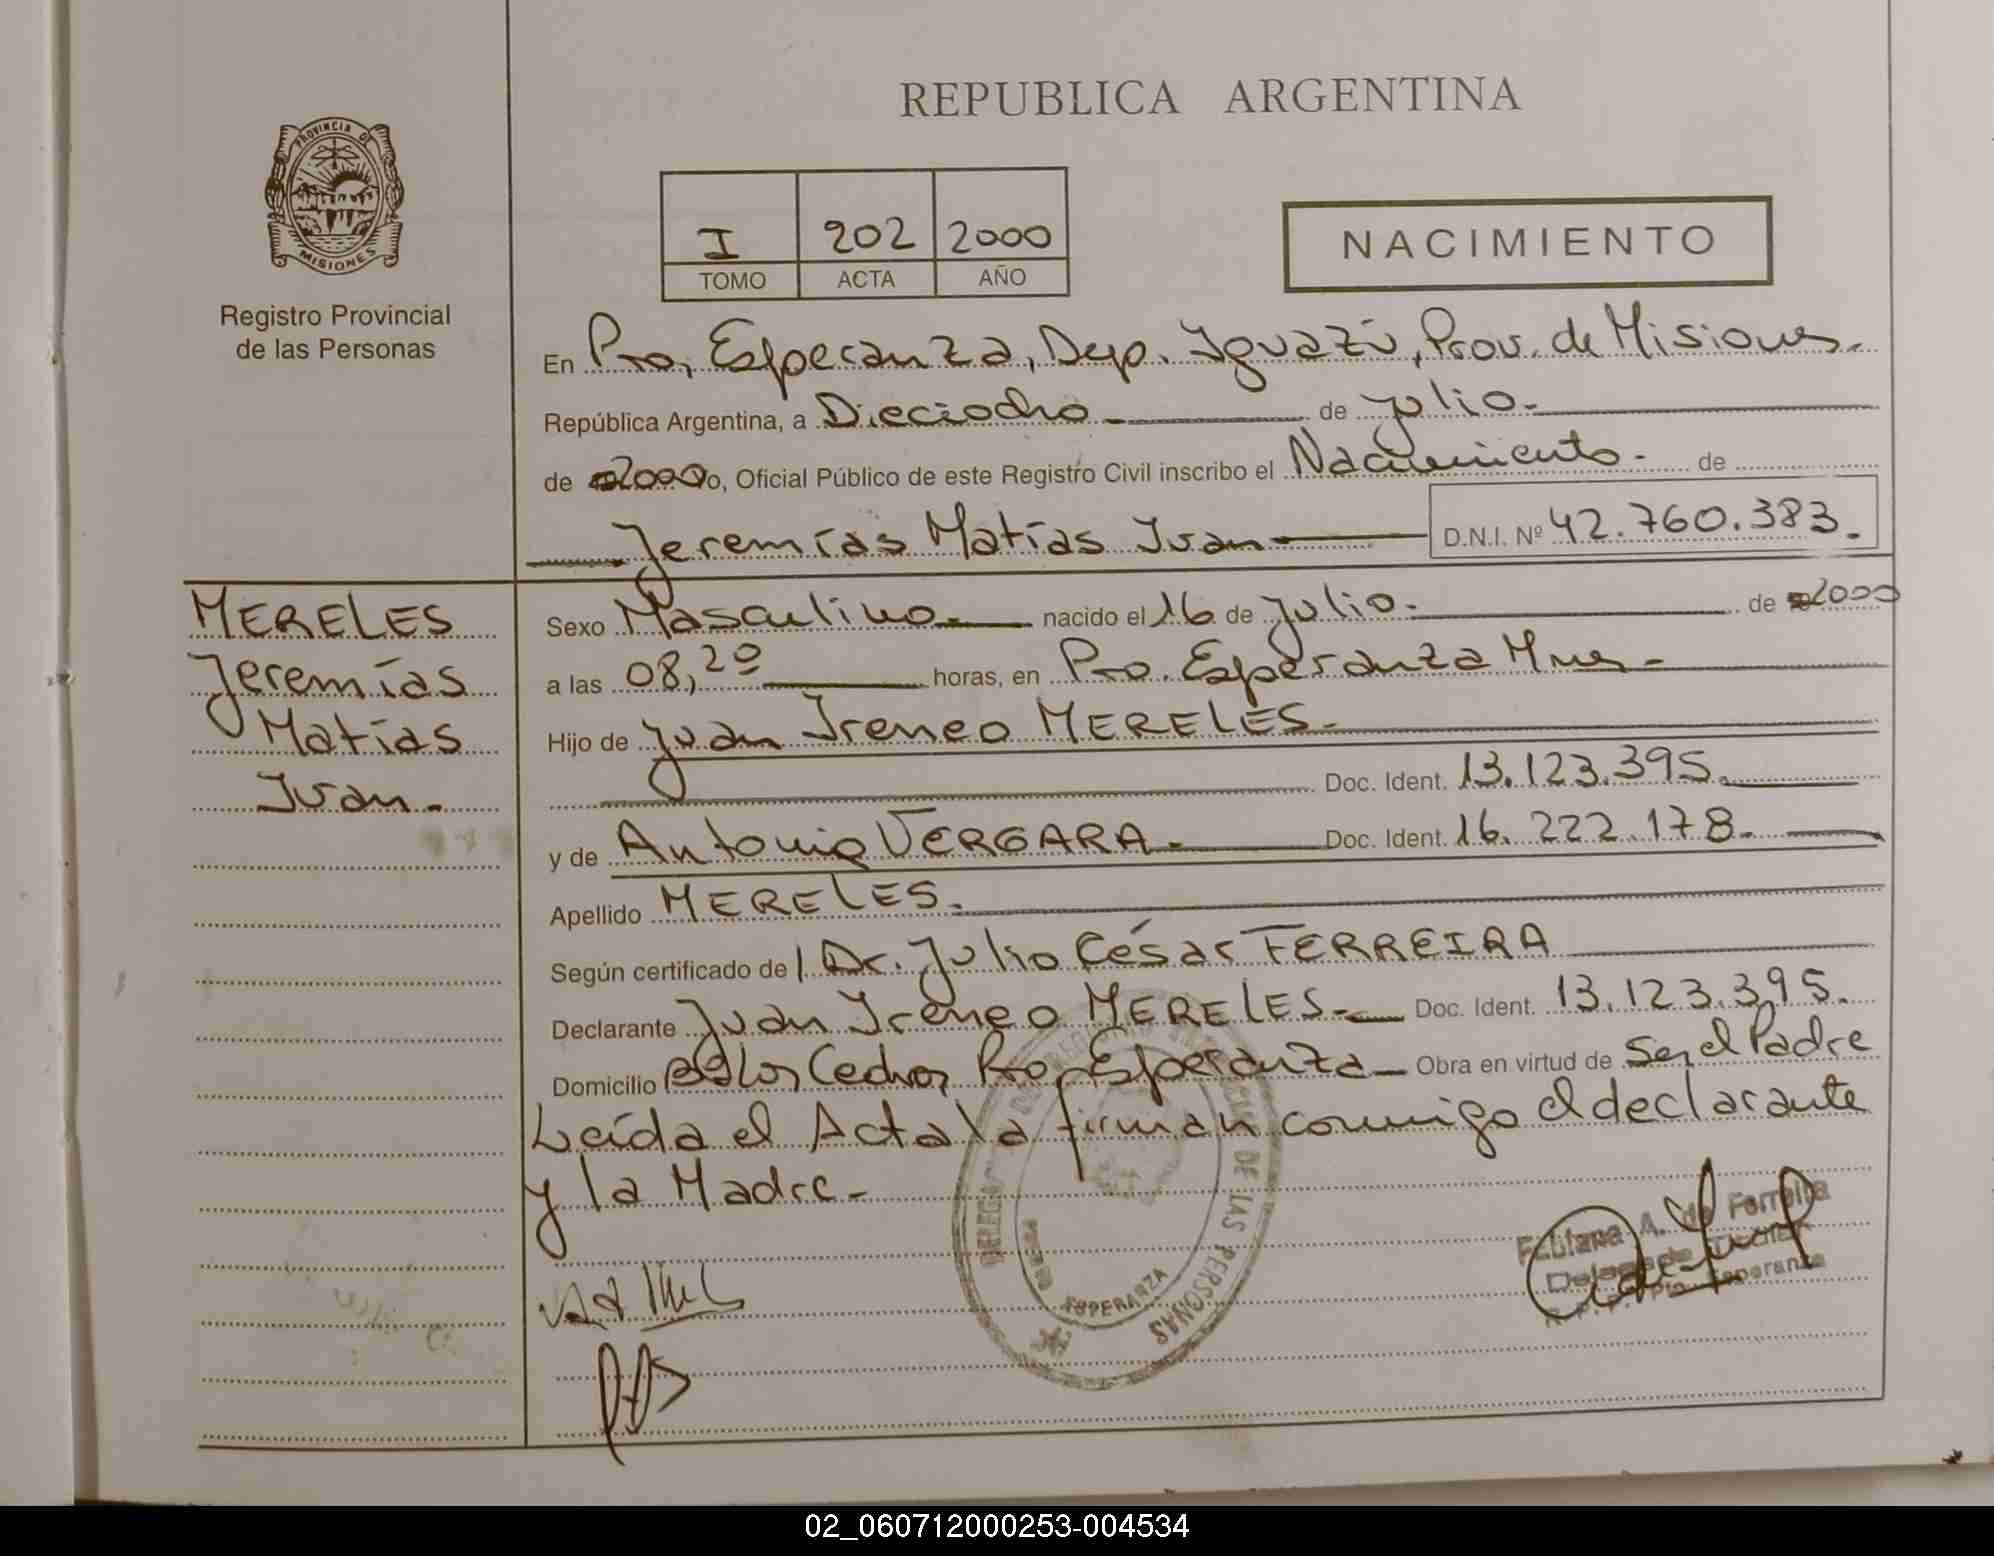 REPUBLICA ARGENTINA
PROVINCIA DE
MISIONES
Registro Provincial
de las Personas
I 202 2000
TOMO ACTA AÑO
NACIMIENTO
En Pto, Esperanza, Dep. Iguazú, Prov. de Misiones.
República Argentina, a Dieciocho de julio.
de 2000 o, Oficial Público de este Registro Civil inscribo el Nacimiento. de
Jeremías Matías Iván D.N.I. Nº 42.760.383.
MERELES
Jeremías
Matías
Iván.
Sexo Masculino. nacido el 16 de julio. de 2000
a las 08,20 horas, en Pto. Esperanza Mnes.
Hijo de Juan Ireneo MERELES.
Doc. Ident. 13.123.395.
y de Antonia VERGARA. Doc. Ident. 16.222.178.
Apellido MERELES.
Según certificado de Dr. Julio César FERREIRA
Declarante Juan Ireneo MERELES. Doc. Ident. 13.123.395.
Domicilio Los Cedros, Pto, Esperanza Obra en virtud de Ser el Padre
Leída el Acta la firman conmigo el declarante
y la Madre.
DE LAS PERSONAS
PUERTO ESPERANZA
Fabiana A. de Ferreira
Delegada Titular
R. P. P. Pto. Esperanza
02_060712000253-004534